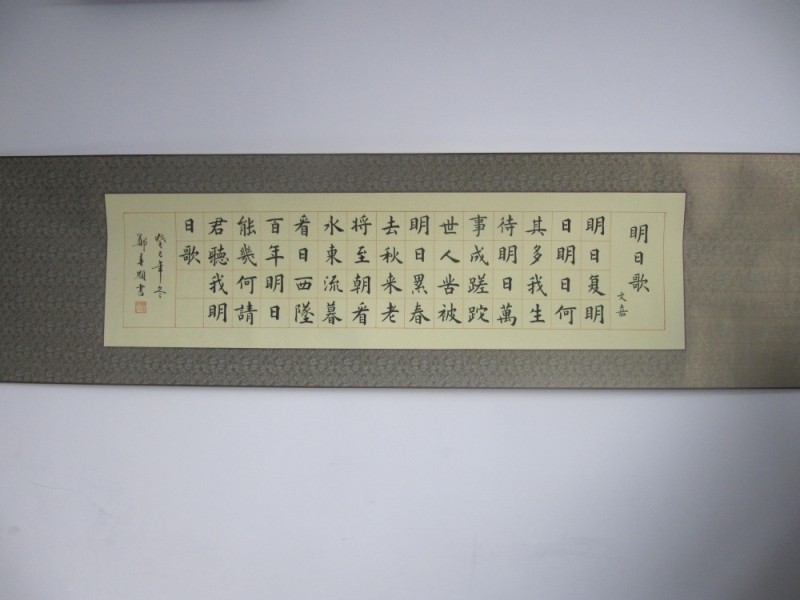 明日歌
文嘉
明日复明
日明日何
其多我生
待明日萬
事成蹉跎
世人苦被
明日累春
去秋来老
将至朝看
水東流暮
看日西墜
百年明日
能幾何請
君聽我明
日歌
癸巳年冬